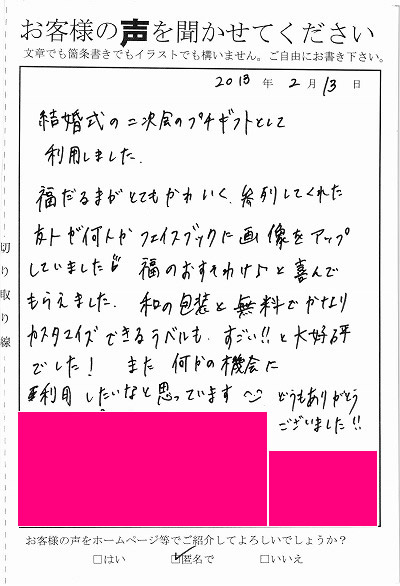 お客様の声を聞かせてください
文章でも箇条書きでもイラストでも構いません。ご自由にお書き下さい。
2013 年 2 月 13 日
結婚式の二次会のプチギフトとして
利用しました.
福だるまがとてもかわいく、参列してくれた
友人が何人か フェイスブックに画像をアップ
していました 福のおすそわけ♪と喜んで
もらえました. 和の包装と無料でかなり
カスタマイズできるラベルも、すごい!!と大好評
でした! また 何かの機会に
利用したいなと思っています どうもありがとう
ございました!!
切り取り線
お客様の声をホームページ等でご紹介してよろしいでしょうか?
□はい ☑匿名で □いいえ